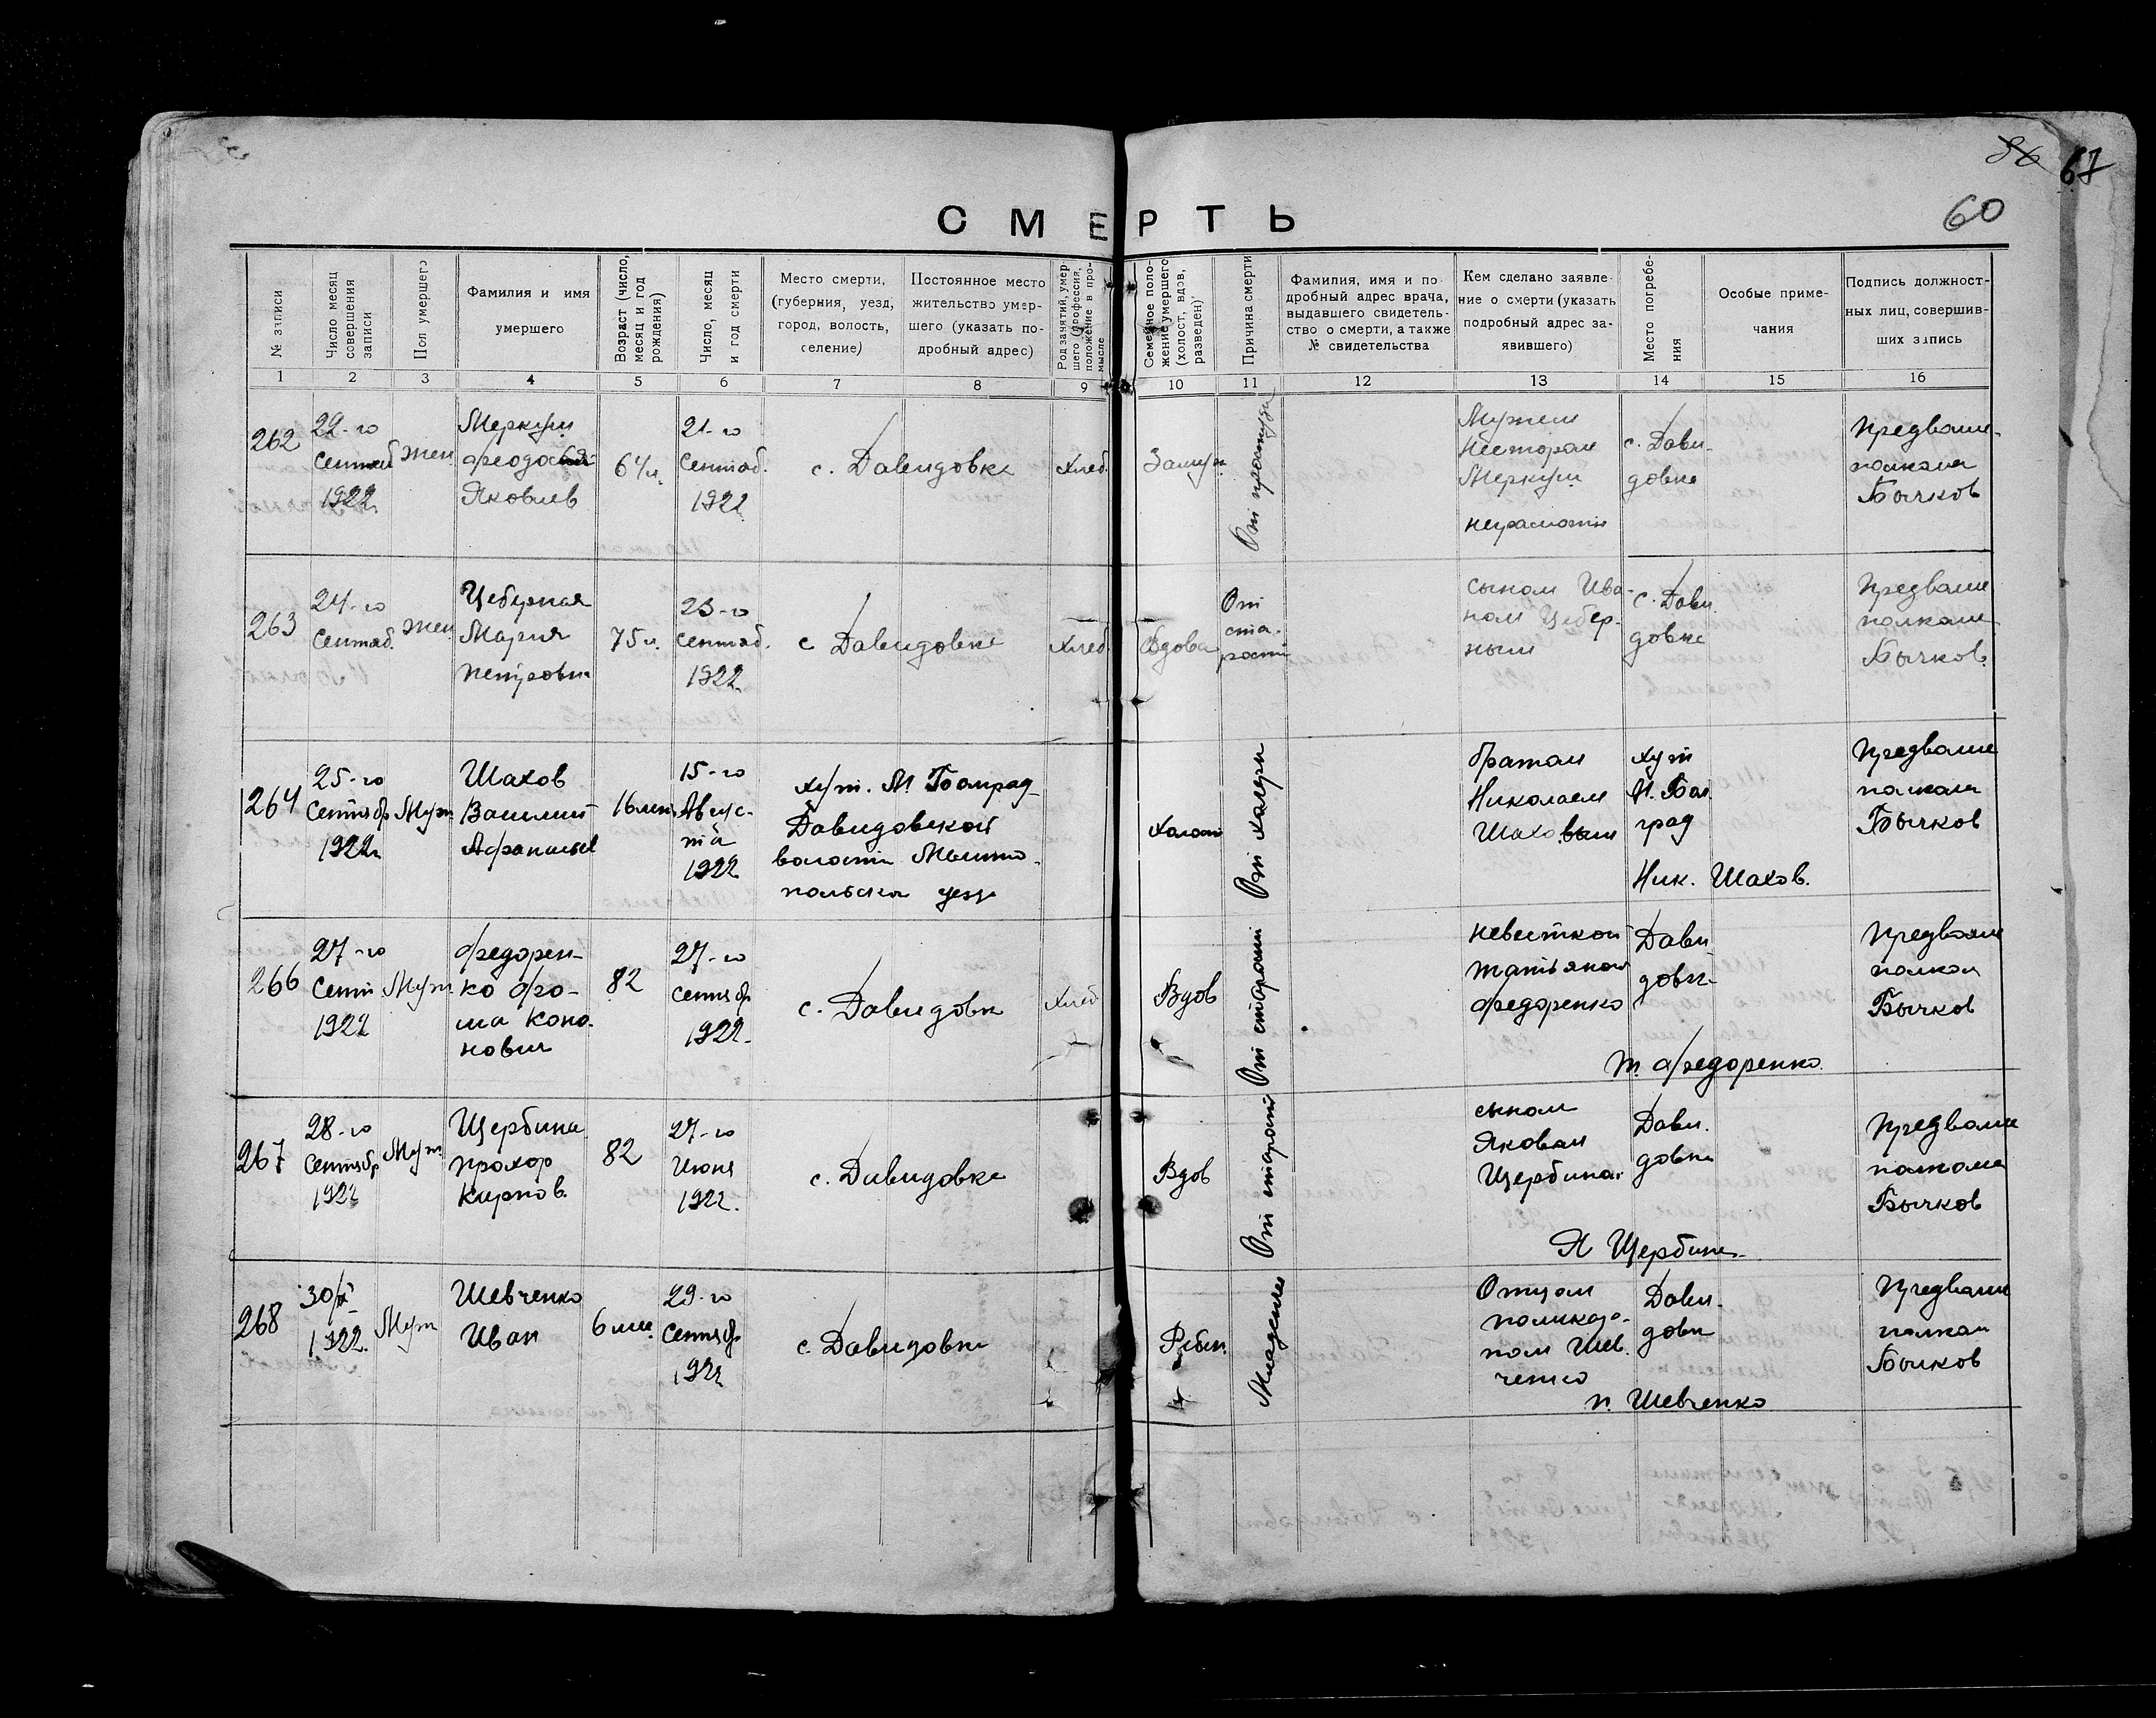 86 67
60
СМЕРТЬ
№ записи
Число месяц совершения записи
Пол умершего
Фамилия и имя
умершего
Возраст (число, месяц и год рождения)
Число, месяц и год смерти
Место смерти,
(губерния, уезд,
город, волость,
селение)
Постоянное место
жительство умер-
шего (указать по-
дробный адрес)
Род занятий, умер-
шего (профессия,
положение в про-
мысле
Семейное поло-
жение умершего
(холост, вдов,
разведен)
Причина смерти
Фамилия, имя и по
дробный адрес врача,
выдавшего свидетель-
ство о смерти, а также
№ свидетельства
Кем сделано заявле-
ние о смерти (указать
подробный адрес за-
явившего)
Место погребе-
ния
Особые приме-
чания
Подпись должност-
ных лиц, совершив-
ших запись
1 2 3 4 5 6 7 8 9 10 11 12 13 14 15 16
262
22-го
Сентяб
1922
Жен
Меркуш
Яковлев
64 л.
21-го
Сентяб.
1922
с. Давидовке
Хлеб
Замуж
От простуды
Мужем
Нестором
Меркуш
неграмотн
с. Дави-
довке
Предволис-
полкома
Бычков
263
24-го
Сентяб.
Жен
Мария
Петровна
75 л.
23-го
Сентяб.
1922
с Давидовке
Хлеб
Вдова
От
ста-
рости
сыном Ива-
ном Цебер-
ным
с. Дави-
довке
Предволис
полкома
Бычков
264
25-го
Сентябр
1922
Муж
Шахов
Василий
Афанасьев
16 лет
15-го
Авгус-
та
1922
хут. М. Болград
Давидовской
волости Мелито-
польска уезд
Холост
От холеры
братом
Николаем
Шаховым
хут
М. Бол
град
Ник. Шахов.
Предволис
полкома
Бычков
266
27-го
Сент
1922
Муж.
Федорен-
ко Фо-
ма Коно-
нович
82
27-го
Сентябр
1922.
с. Давидовк
Хлеб
Вдов
От старости
невесткой
Татьяной
Федоренко
Дави
довк
Т. Федоренко
Предволис
полком
Бычков
267
28-го
Сентябр
1922
Муж
Щербина
Прохор
Карпов.
82
27-го
Июня
1922.
с. Давидовке
Вдов
От старости
сыном
Яковом
Щербина
Дави-
довке
Я Щербина
Предволис
полкома
Бычков
268
1922.
Муж
Шевченко
Иван
6 мес.
29-го
Сентябр
1922
с. Давидовке
Ребен.
Младенец
Отцом
Поликар-
пом Шев.
ченко
Дави-
довк
п. Шевченко
Предволис
полком
Бычков